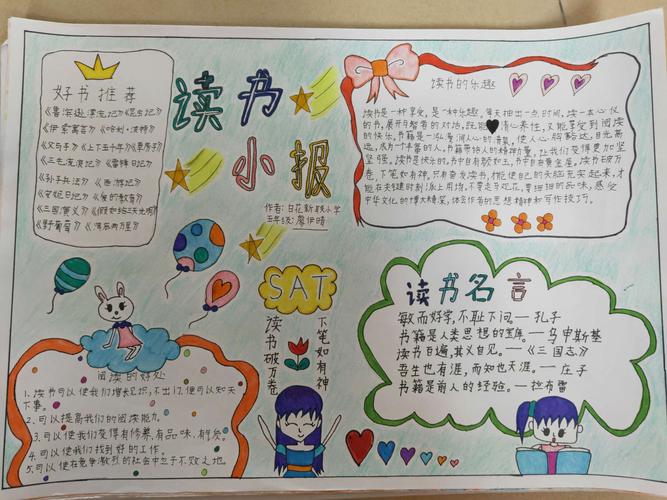 好书推荐
《鲁滨逊漂流记》《昆虫记》
《伊索寓言》《哈利·波特》
《父与子》《上下五千年》《草房子》
《三毛流浪记》《雷锋日记》
《孙子兵法》《西游记》
《安妮日记》《爱的教育》
《三国演义》《假如给三天光明》
《野葡萄》
读书
小报
作者:白花新联小学
五年级:廖伊晴
读书的乐趣
读书是一种享受,是一种乐趣,每天抽出一点时间,读一本心仪
的书,展开与智者的对话,既能 清心养性,又能享受到阅读
的快乐。书籍是一泓 润人心的清泉,使人心胸豁达,目光高
远,成为一个富的人。书籍带给人的精神力量,让我们变得更加
坚强。读书是快乐的,书中自有颜如玉,书中自有黄金屋。读书破万
卷,下笔如有神,只有奋发读书,把使自己的头脑充实起来,才
能在关键时刻派上用场。不要走马观花,要细细的品味,感受
中华文化的博大精深,体会作者的思想精神和写作技巧。
SAT
读书破万卷
下笔如有神
读书名言
敏而好学,不耻下问——孔子
书籍是人类思想的宝库。——乌申斯基
读书百遍,其义自见。——《三国志》
吾生也有涯,而知也无涯。——庄子
书籍是前人的经验。——拉布雷
阅读的好处
1.读书可以使我们增长见识,不出门,便可以知天
下事。
2.可以提高我们的阅读能力。
3.可以使我们变得有修养,有品味,有气质。
4.可以使我们找到好的工作。
5.可以使在竞争激烈的社会中立于不败之地。